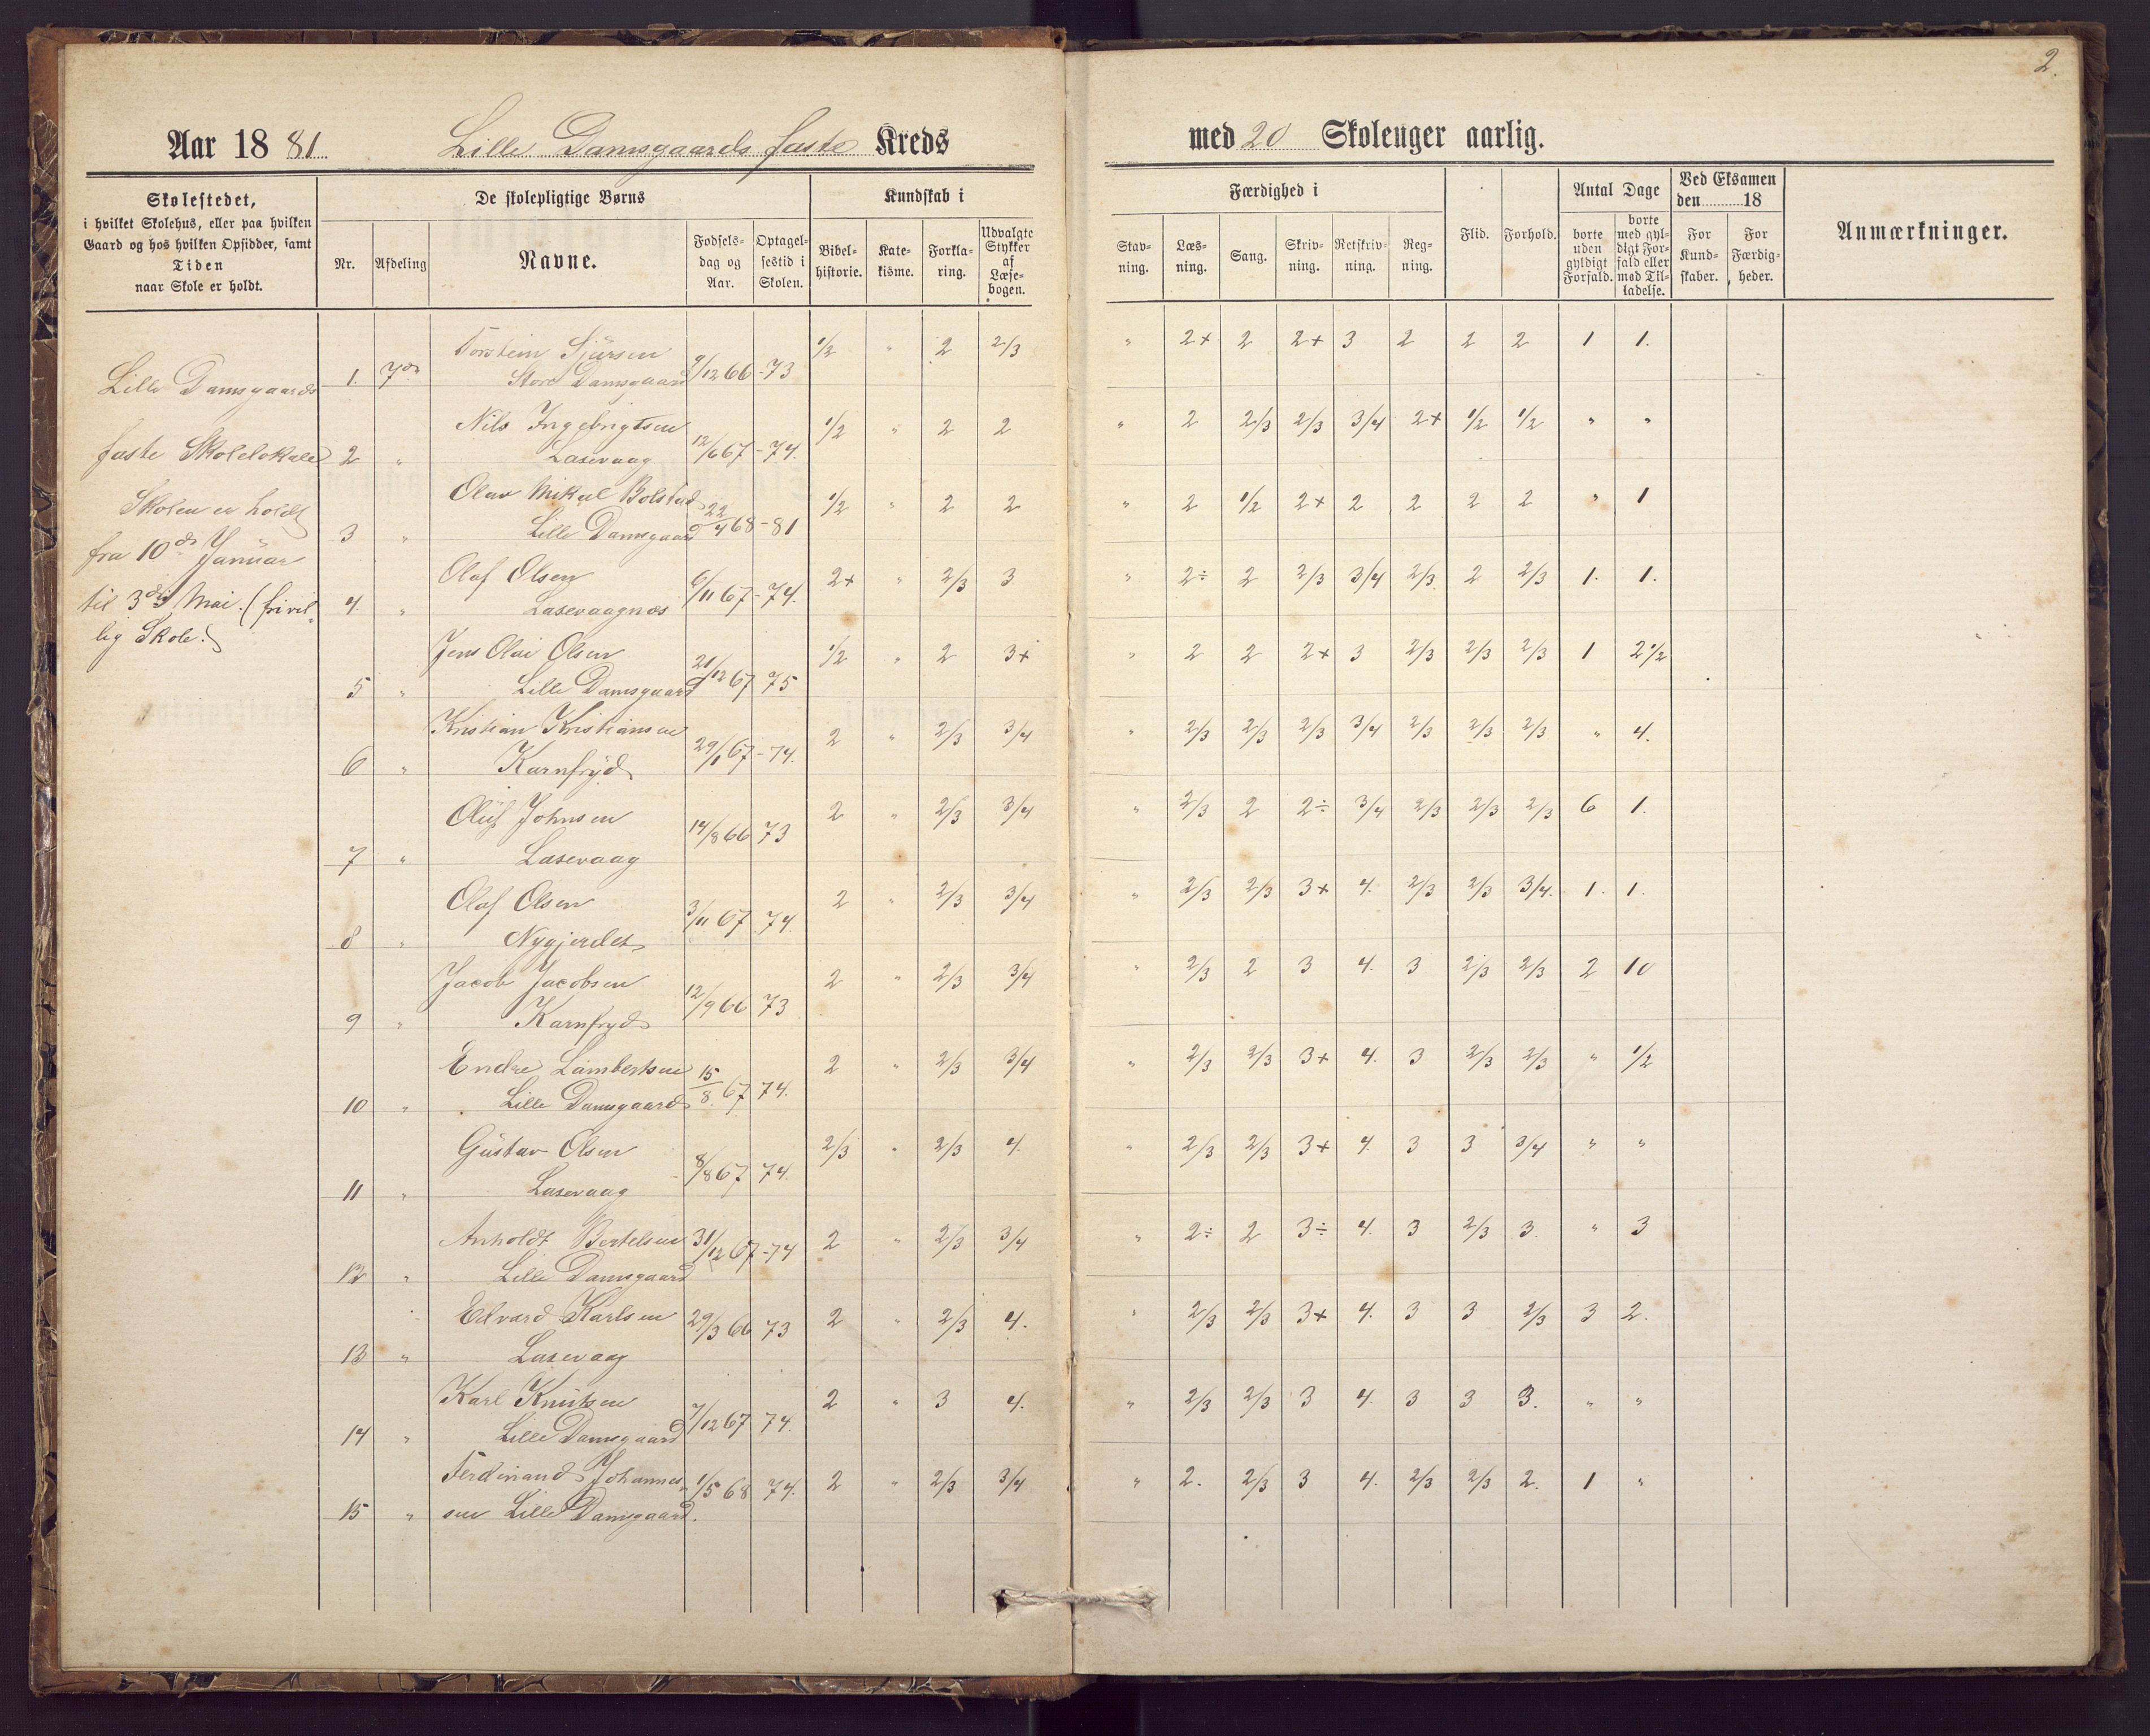 2.
Aar 1881 Lille Damsgaards faste Kreds med 20 Skoleuger aarlig.
Skolestedet,
i hvilket Skolehus, eller paa hvilken
Gaard og hos hvilken Opsidder, samt
Tiden
naar Skole er holdt.
De skolepligtige Børns
Nr. Afdeling Navne. Fødsels-dag og Aar. Optagel-sestid i Skolen.
Kundskab i
Bibel-historie. Kate-kisme. Forkla-ring. Udvalgte Stykker af Læse-bogen.
Færdighed i
Stav-ning. Læs-ning. Sang. Skriv-ning. Retskriv-ning. Reg-ning.
Flid. Forhold.
Antal Dage
borte uden gyldigt Forfald. borte med gyl-digt For-fald eller med Til-ladelse.
Ved Eksamen
den 18
For Kund-skaber. For Færdig-heder.
Anmærkninger.
Lille Damsgaards
faste Skolelokale
Skolen er holdt
fra 10de Januar
til 3die Mai. (frivil-
lig Skole.)
Torstein Sjursen
1. 7de Store Damsgaard 9/12 66 - 73 1/2 " 2 2/3 " 2+ 2 2+ 3 2 2 2 1 1.
Nils Ingebrigtsen
2 " Laxevaag 12/6 67 - 74. 1/2 " 2 2 " 2 2/3 2/3 3/4 2+ 1/2 1/2 " "
Olav Mikal Bolstad
3 " Lille Damsgaard 22/4 68 - 81 1/2 " 2 2 " 2 1/2 2+ 2 2 2 2 " 1
Olaf Olsen
4. " Laxevaagnes 6/11 67 - 74. 2+ " 2/3 3 " 2÷ 2 2/3 3/4 2/3 2 2/3 1. 1.
Jens Olai Olsen
5 " Lille Damsgaard 21/12 67 75 1/2 " 2 3+ " 2 2 2+ 3 2/3 2/3 2/3 1 2 1/2
Kristian Kristiansen
6 " Karnfryd 29/1 67 - 74. 2 " 2/3 3/4 " 2/3 2/3 2/3 3/4 2/3 2/3 2/3 " 4.
Oluf Johnsen
7 " Laxevaag 14/8 66 73 2 " 2/3 3/4 " 2/3 2 2÷ 3/4 2/3 2/3 2/3 6 1.
Olaf Olsen
8 " Nygjerdet 3/11 67 74. 2 " 2/3 3/4 " 2/3 2/3 3+ 4. 2/3 2/3 3/4. 1. 1.
Jacob Jacobsen
9 " Karnfryd 12/9 66 73 2 " 2/3 3/4 " 2/3 2 3 4. 3 2/3 2/3 2 10
Endre Lambertsen
10 " Lille Damsgaard 15/8 67 74. 2 " 2/3 3/4 " 2/3 2/3 3+ 4. 3 2/3 2/3 " 1/2
Gustav Olsen
11 " Laxevaag 8/8 67 74. 2/3 " 2/3 4. " 2/3 2/3 3+ 4. 3 3 3/4 " "
Anholdt Bertelsen
12 " Lille Damsgaard 31/12 67 - 74 2 " 2/3 3/4 " 2÷ 2 3÷ 4. 3 2/3 3. " 3
Edvard Karlsen
13 " Laxevaag 29/3 66 73 2 " 2/3 4. " 2/3 2/3 3+ 4. 3 3 2/3 3 2.
Karl Knutsen
14 " Lille Damsgaard 7/12 67 74. 2 " 3 4. " 2/3 2/3 3 4. 3 3 3. " "
Ferdinand Johannes-
15 " sen Lille Damsgaard. 1/5 68 74. 2 " 2/3 3/4 " 2. 2/3 3 4. 2/3 2/3 2. 1 "